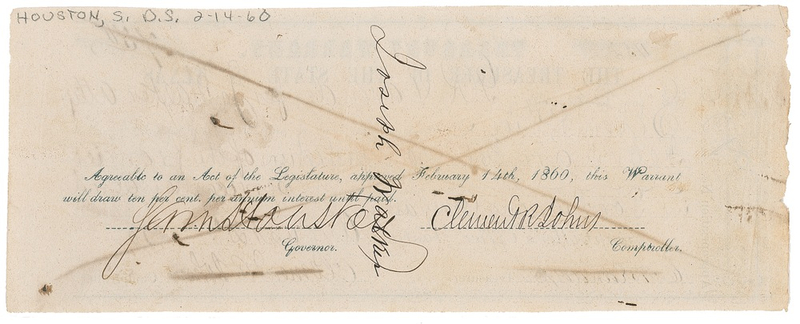 HOUSTON, S. D.S. 2-14-60
Joseph Walker
Agreeable to an Act of the Legislature, approved February 14th, 1860, this Warrant
will draw ten per cent. per annum interest until paid.
Sam Houston Clement R Johns
Governor. Comptroller.